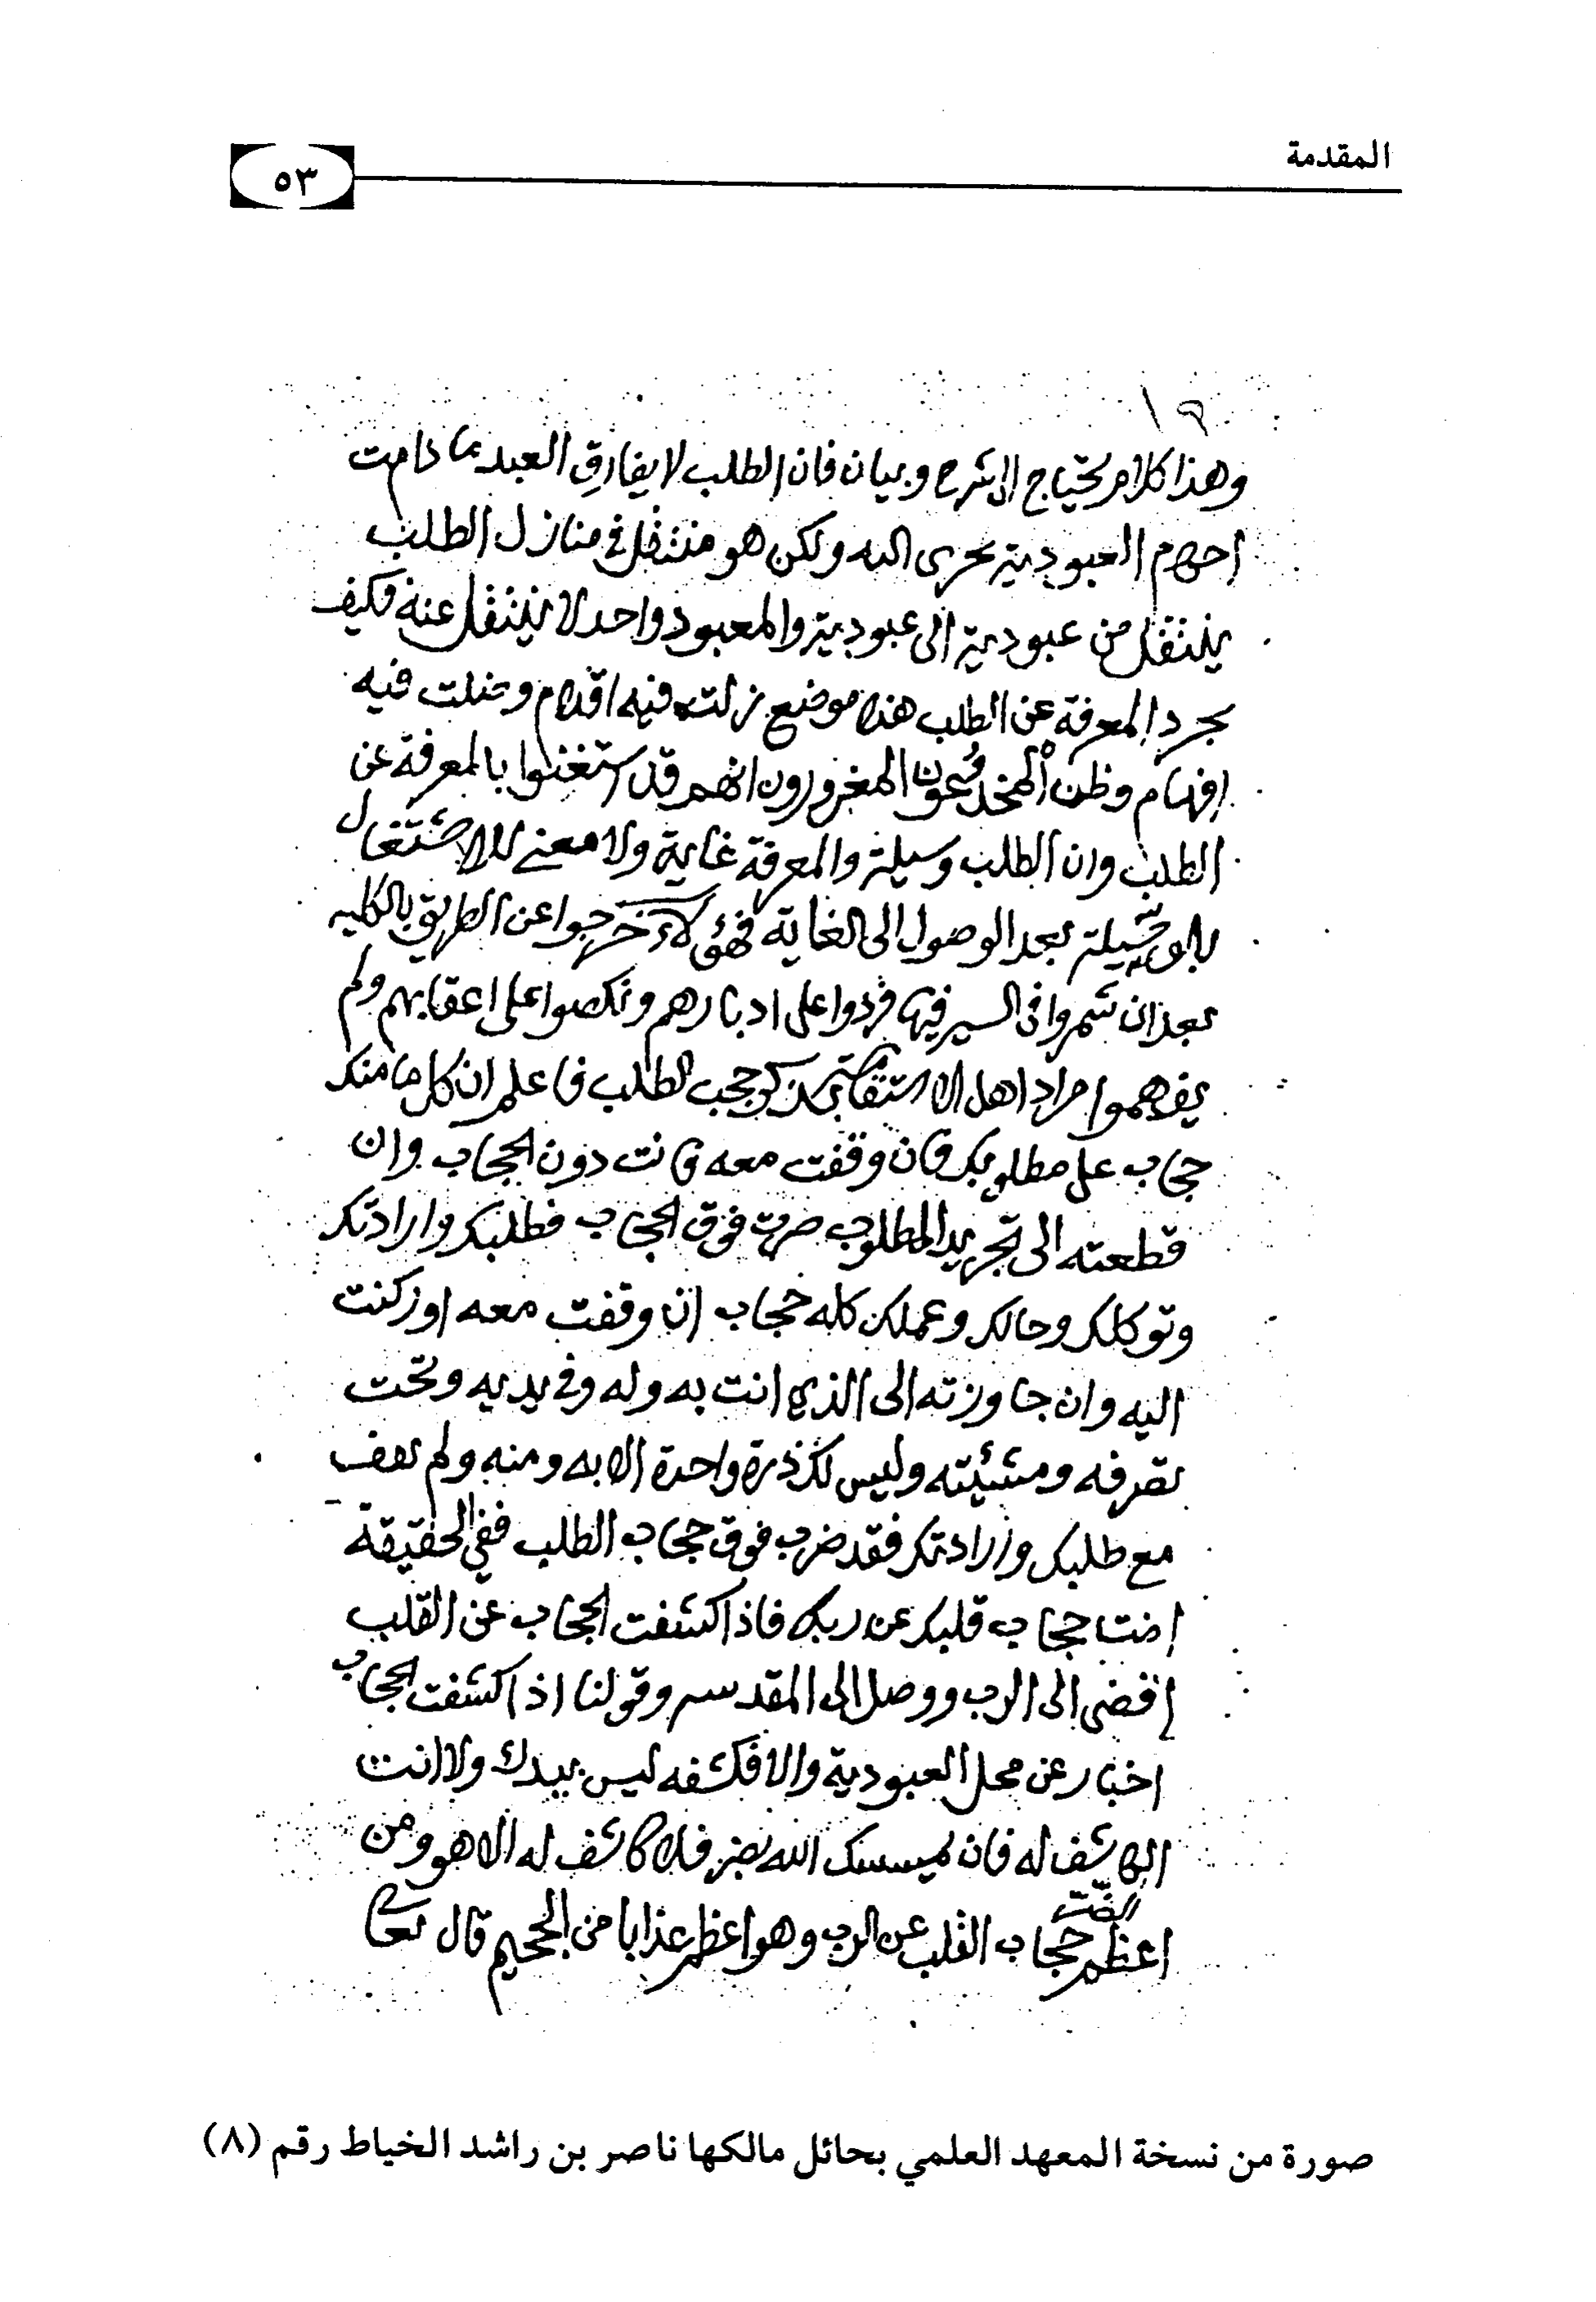 المقدمة
٥٣
وهذا كلام يحتاج الى شرح وبيان فان الطلب لا يفارق العبد ما دامت
احكام العبودية تجرى اليه ولكن هو منتقل في منازل الطلب
ينتقل من عبودية الى عبودية والمعبود واحد لا ينتقل عنه فكيف
بجرد المعرفة عن الطلب هذا موضع زلت فيه اقدام وضلت فيه
افهام وظن المخدوعون المغرورون انهم قد استغنوا بالمعرفة عن
الطلب وان الطلب وسيلة والمعرفة غاية ولا معنى للاشتغال
بالوسيلة بعد الوصول الى الغاية فهؤلاء خرجوا عن الطريق بالكليه
بعد ان شمروا في السير فيها فردوا على ادبارهم ونكصوا على اعقابهم ولم
يفهموا مراد اهل الاستقامة بذكر حجب الطلب فاعلم ان كل ما منك
حجاب على مطلوبك فان وقفت معه فانت دون الحجاب وان
قطعته الى تجريد المطلوب صرت فوق الحجاب فطلبك وارادتك
وتوكلك وحالك وعملك كله حجاب ان وقفت معه او ركنت
اليه وان جاوزته الى الذي انت به وله وفي يديه وتحت
تصرفه ومشيئته وليس لك ذرة واحدة الا به ومنه ولم تقف
مع طلبك وارادتك فقد صرت فوق حجاب الطلب ففي الحقيقة
انت حجاب قلبك عن ربك فاذا كشفت الحجاب عن القلب
افضى الى الرب ووصل الى المقدس وقولنا اذا كشفت الحجاب
اخبار عن محل العبودية والا فكشفه ليس بيدك ولا انت
الكاشف له فان يمسسك الله بضر فلا كاشف له الا هو ومن
اعظم الضر حجاب القلب عن الرب وهو اعظم عذابا من الجحيم قال تعالى
صورة من نسخة المعهد العلمي بحائل مالكها ناصر بن راشد الخياط رقم (٨)